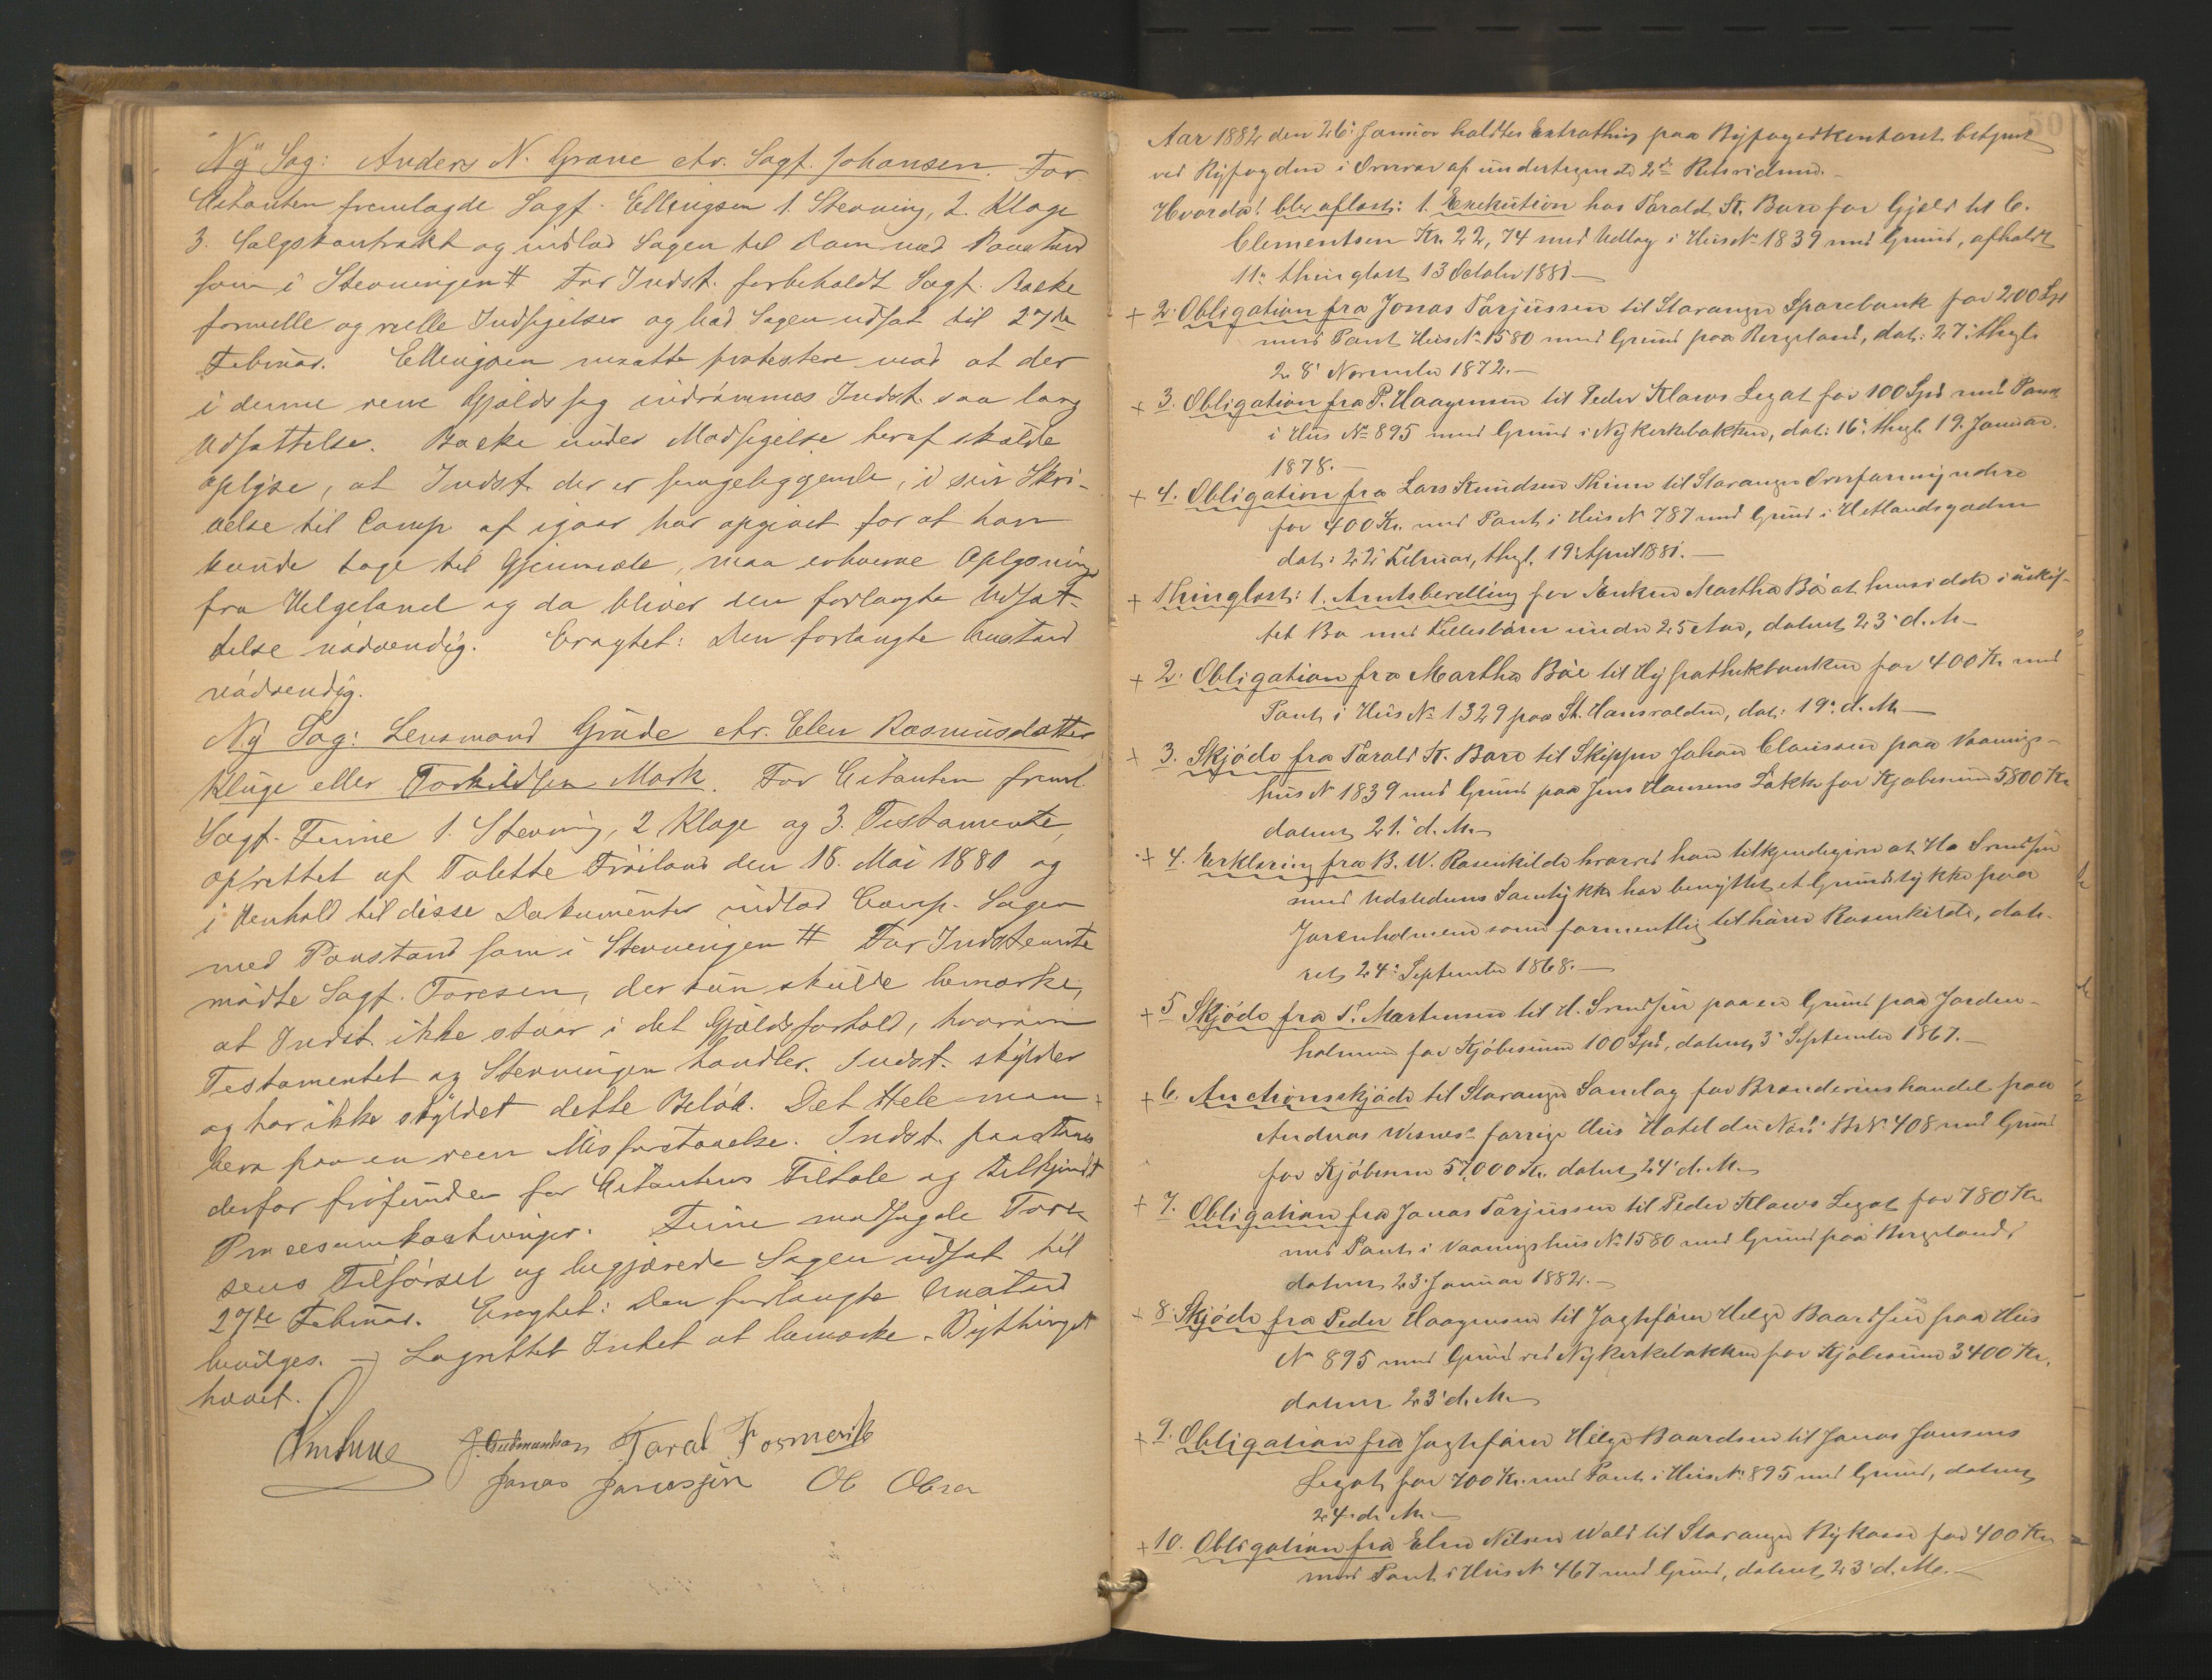 Ny Sag: Anders N. Grane ctr. Sagf. Johansen. For
Citanten fremlagde Sagf. Ellingsen 1. Stevning, 2. Klage
3. Salgskontrakt og indlod Sagen til Dom med Paastand
som i Stevningen # For Indst. forbeholdt Sagf. Backe
formelle og reelle Indsigelser og bad Sagen udsat til 27de
Februar. Ellingsen maatte protestere mod at der
i denne rene Gjældssag indrømmes Indst. saa lang
Udsættelse. Backe under Modsigelse heraf skulde
oplyse, at Indst. der er sengeliggende, i sin Skri-
velse til Comp. af igaar har opgivet for at han
kunde tage til Gjenmæle, maa erhverve Oplysninger
fra Helgeland og da bliver den forlangte Udsæt-
telse nødvendig. Eragtet: Den forlangte Anstand
nødvendig.
Ny Sag: Lensmand Grude ctr. Elen Rasmusdatter
Kluge eller Torkildsen Mork. For Citanten freml.
Sagf. Feine 1. Stevning, 2 Klage og 3. Testamente,
oprettet af Tolette Frøiland den 18. Mai 1880 og
i Henhold til disse Dokumenter indlod Comp. Sagen
med Paastand som i Stevningen # For Indstevnte
mødte Sagf. Toresen, der kun skulde bemærke,
at Indst. ikke staar i det Gjældsforhold, hvorom
Testamentet og Stevningen handler. Indst. skylder
og har ikke skyldet dette Beløb. Det Hele maa
bero paa en reen Misforstaaelse. Indst. paastaaes
derfor frifunden for Citantens Tiltale og tilkjendt
Procesomkostninger. Feine modsagde Tore-
sens Tilførsel og begjærede Sagen udsat til
27de Februar. Eragtet: Den forlangte Anstand
bevilges. — Lagrettet Intet at bemærke. Bythinget
hævet.
J. Gudmundsen Taral Fosmark
Jonas Jonassen Ol Olsen
50
Aar 1882 den 26' Januar holdtes Extrathing paa Byfogedkontoret bestyret
ved Byfogden i Overvær af undertegnede 2de Retsvidner.
Hvorda! blev aflæst: 1. Exekution hos Tarald St. Bore for Gjæld til C.
Clementsen Kr. 22,74 med Udlæg i Hus No 1839 med Grund, afholdt
11te thinglæst 13 October 1881 —
+ 2. Obligation fra Jonas Tarjussen til Stavanger Sparebank for 200 Spd
med Pant Hus No 1580 med Grund paa Bergeland, dat: 27. thgl.
28' November 1872. —
+ 3. Obligation fra P. Haagensen til Peder Klaws Legat for 100 Spd med Pant
i Hus No 895 med Grund i Nykirkebakken, dat: 16'. thgl. 19. Januar
1878. —
+ 4. Obligation fra Lars Knudsen til Stavanger Overformynderi
for 400 Kr. med Pant i Hus No 787 med Grund i Hetlandsgaden
dat: 22' Februar, thgl. 19' April 1881. —
+ Thinglæst: 1. Amtsbevilling for Enken Martha Bø at hensidde i uskif-
tet Bo med Fællesbørn under 25 Aar, dateret 23' d. M. —
+ 2. Obligation fra Martha Bøe til Hypothekbanken for 400 Kr. med
Pant i Hus No 1329 paa St. Hansvolden, dat: 19' d. M. —
+ 3. Skjøde fra Tarald St. Bore til Skipper Johan Claussen paa Vaanings-
hus No 1839 med Grund paa Jens Hansens Løkke for Kjøbesum 5800 Kr.
dateret 21' d. M. —
+ 4. Erklæring fra B. W. Rosenkilde hvorved han tilkjendegiver at Ha Svendsen
med Udstederens Samtykke har benyttet et Grundstykke paa
Jorenholmen som formentlig tilhører Rosenkilde, date-
ret 24' September 1868. —
+ 5 Skjøde fra T. Martensen til H. Svendsen paa en Grund paa Jorden-
holmen for Kjøbesum 100 Spd, dateret 3' September 1867. —
+ 6. Auctionsskjøde til Stavanger Samlag for Brændevinshandel paa
Andreas Wesnes's forrige Hus Hotel du Nord Br. No. 408 med Grund
for Kjøbesum 57,000 Kr. dateret 24' d. M. —
+ 7. Obligation fra Jonas Tarjussen til Peder Klaws Legat for 780 Kr.
med Pant i Vaaningshus No 1580 med Grund paa Bergeland,
dateret 23. Januar 1882. —
+ 8. Skjøde fra Peder Haagensen til Jagtfører Helge Baardsen paa Hus
No 895 med Grund ved Nykirkebakken for Kjøbesum 3400 Kr.
dateret 23' d. M. —
+ 9. Obligation fra Jagtfører Helge Baardsen til Jonas Jansens
Legat for 700 Kr. med Pant i Hus No. 895 med Grund, dateret
24. d. M. —
+ 10. Obligation fra Elen Nilsen Wold til Stavanger Bykasse for 400 Kr.
med Pant i Hus No 467 med Grund, dateret 23' d. M. —